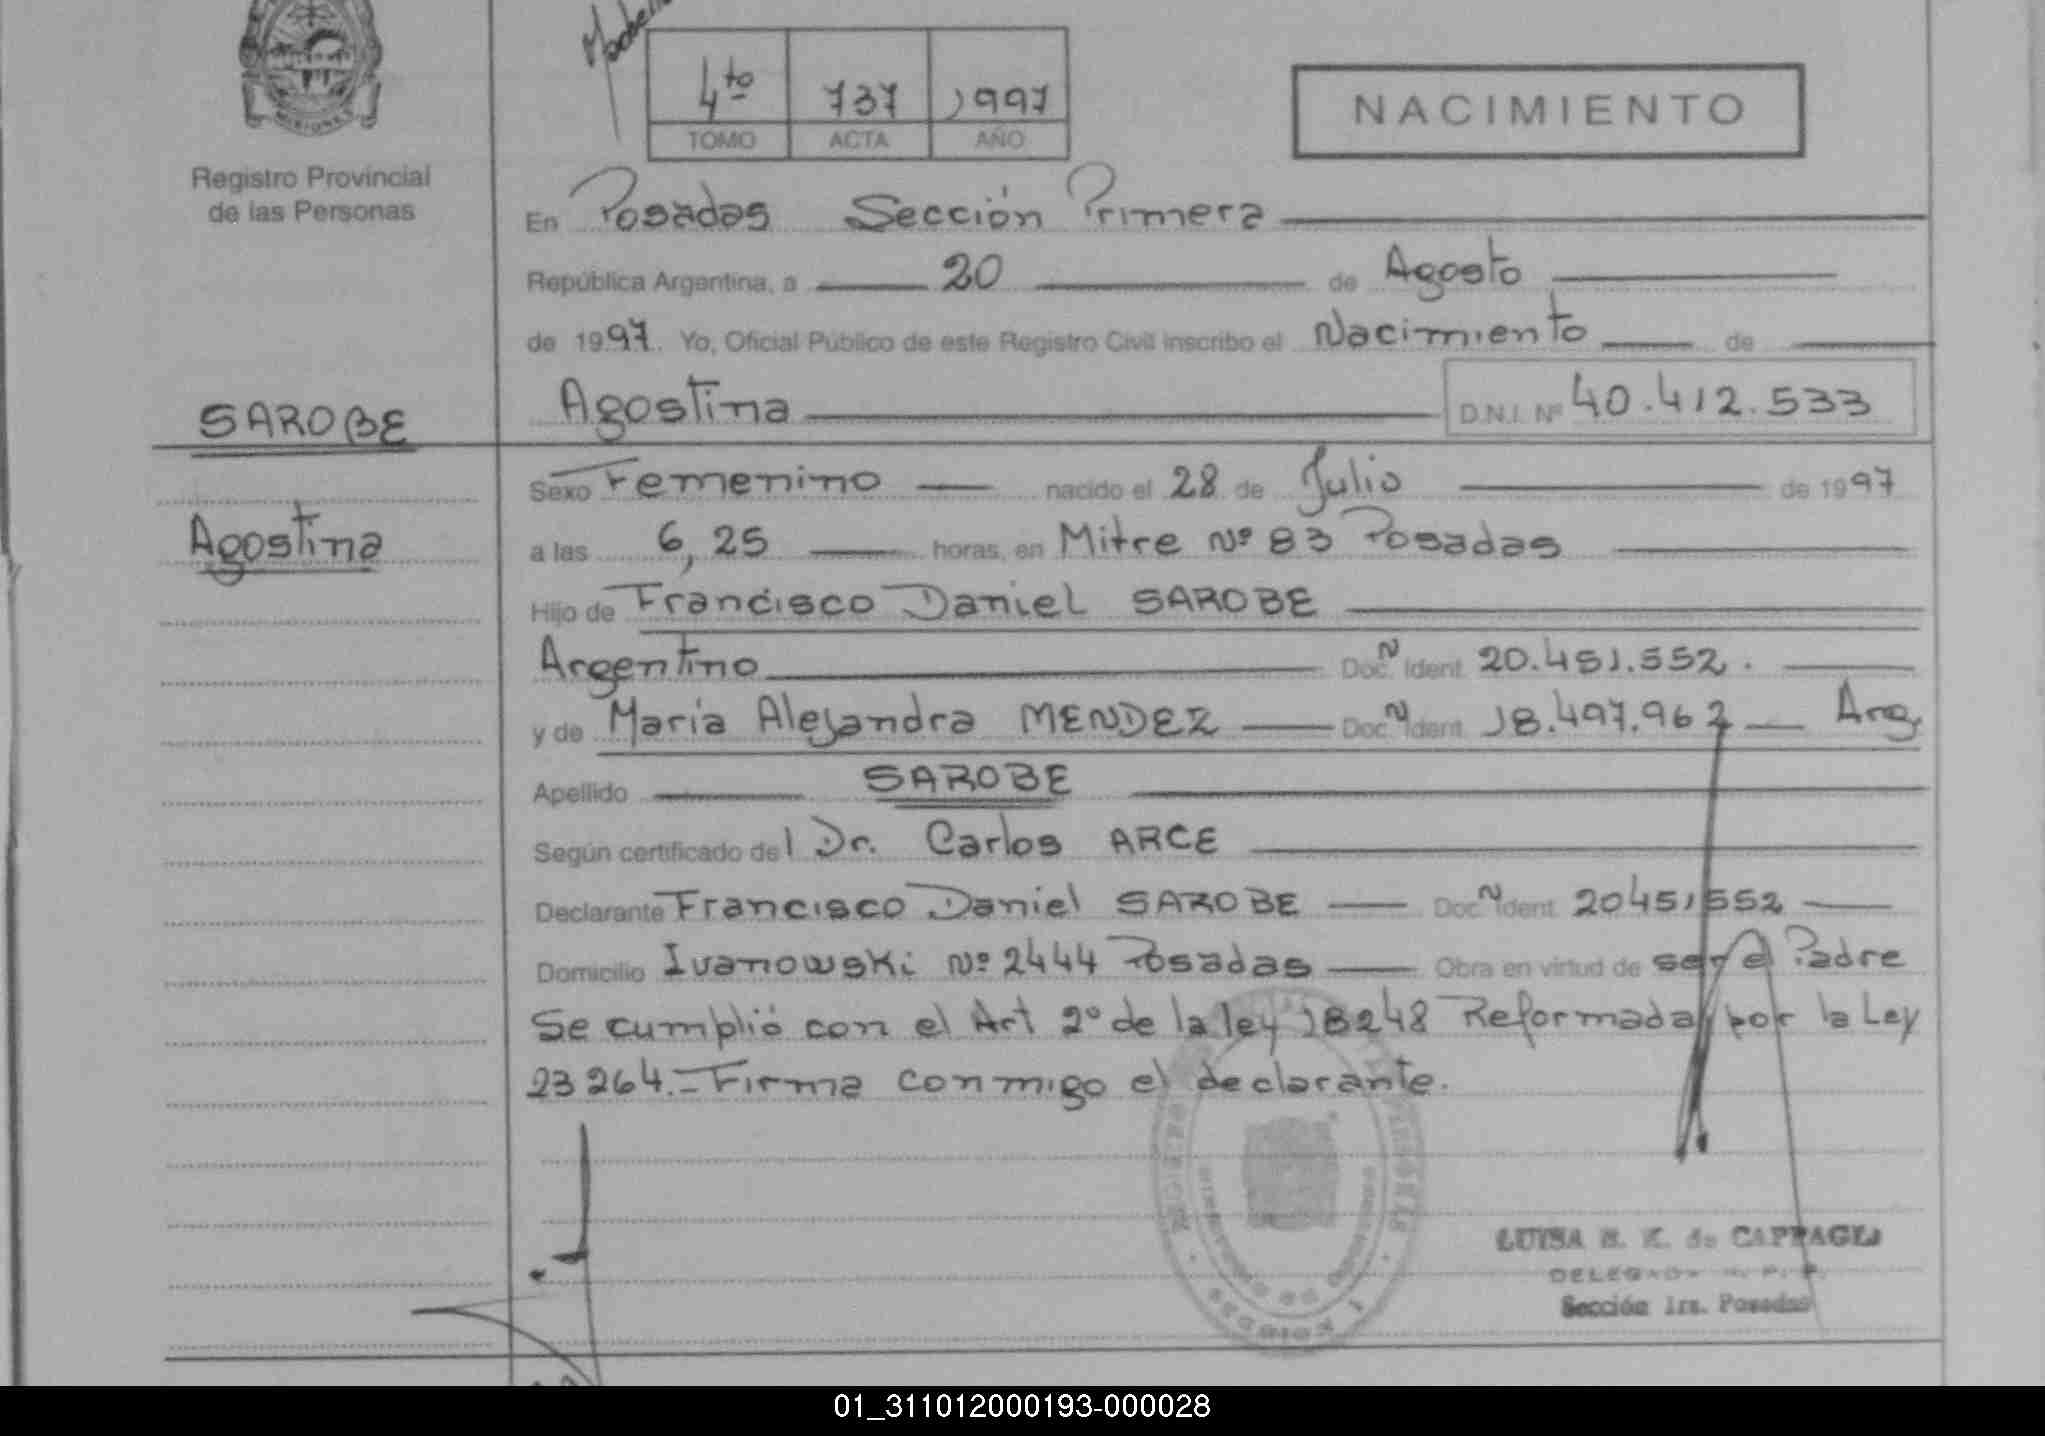 MISIONES
Registro Provincial
de las Personas
4to 737 1997
TOMO ACTA AÑO
NACIMIENTO
En Posadas Sección Primera
República Argentina, a 20 de Agosto
de 1997. Yo, Oficial Público de este Registro Civil inscribo el Nacimiento de
SAROBE
Agostina D.N.I. Nº 40.412.533
Agostina
Sexo Femenino nacido el 28 de Julio de 1997
a las 6,25 horas, en Mitre Nº 83 Posadas
Hijo de Francisco Daniel SAROBE
Argentino Doc. N Ident. 20.451.552.
y de María Alejandra MENDEZ Doc. N Ident. 18.497.967 Arg.
Apellido SAROBE
Según certificado del Dr. Carlos ARCE
Declarante Francisco Daniel SAROBE Doc. N Ident. 20451552
Domicilio Ivanowski Nº 2444 Posadas Obra en virtud de ser el Padre
Se cumplió con el Art 2º de la ley 18248 Reformada por la Ley
23264.- Firma conmigo el declarante.
LUISA de
DELEGADA
Sección 1ra. Posadas
01_311012000193-000028